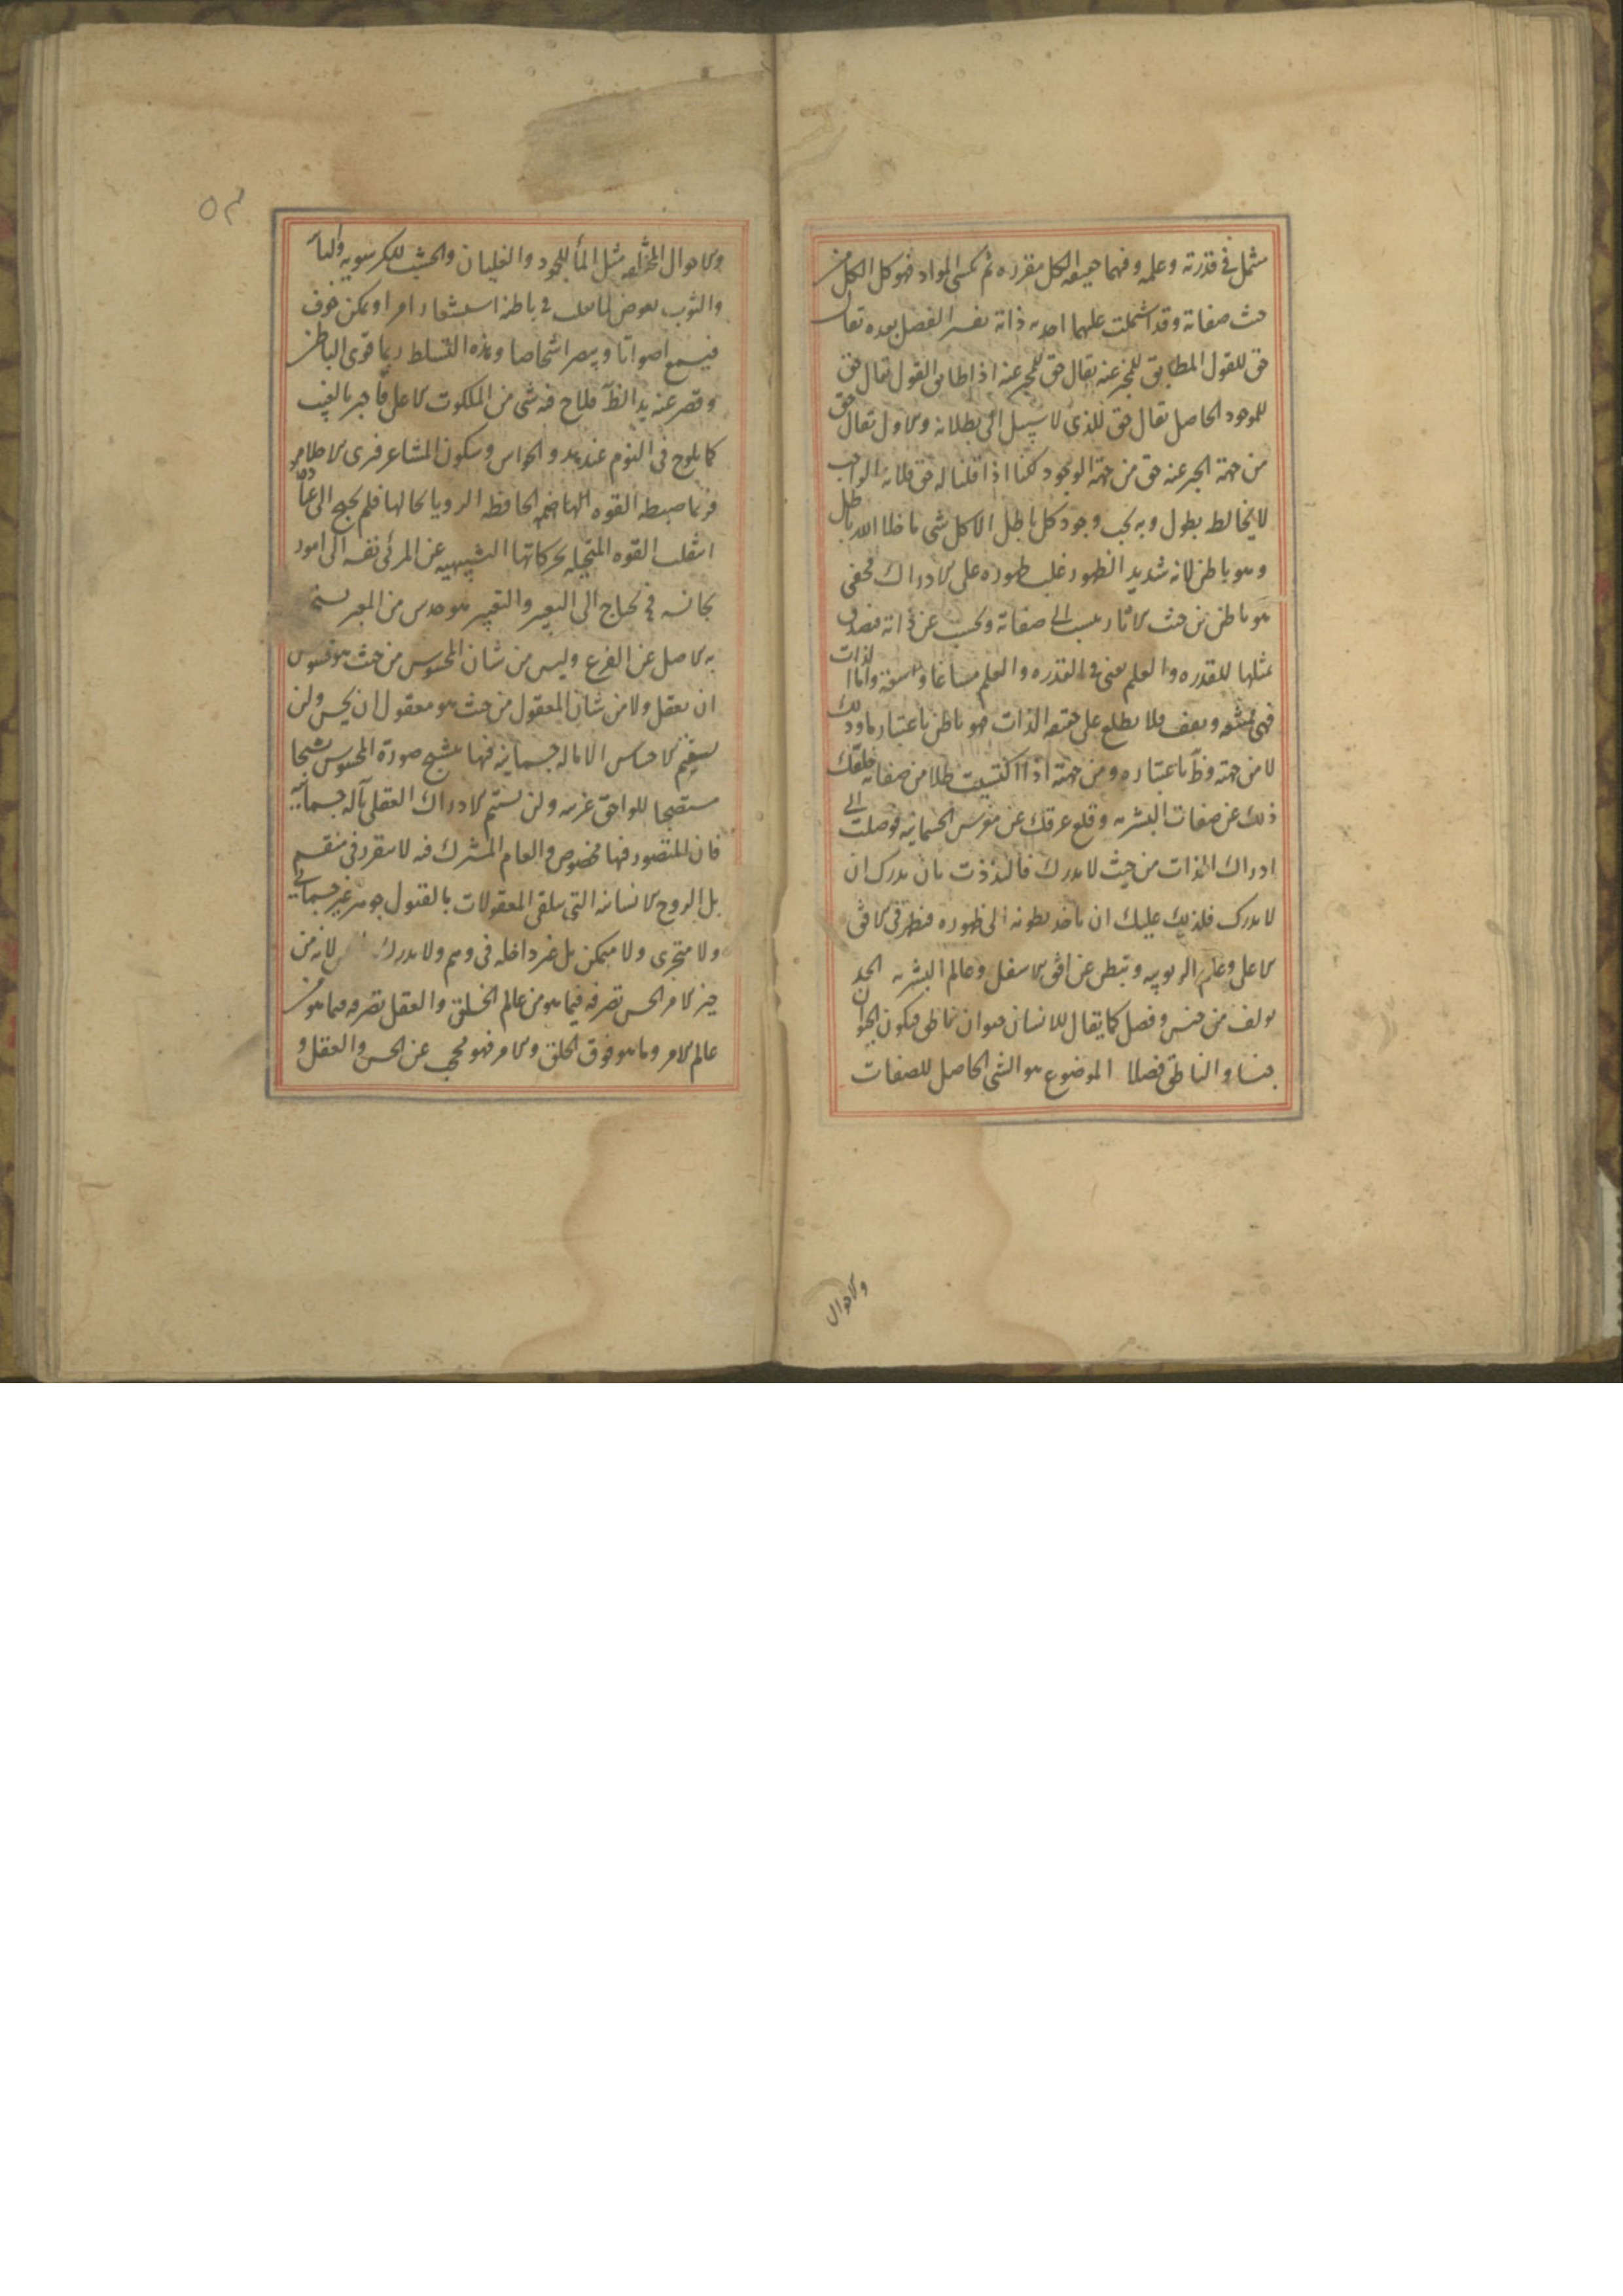 مثمل في قدرته وعلمه وفيهما حقيقة الكل مفرده ثم تكسى المواد فهو كل الكل من
حيث صفاته وقد اشتملت عليهما احديه ذاته تفسير الفصل بعده تعال
حق للقول المطابق للمخبر عنه يقال حق للمخبر عنه اذا طابق القول يقال حق
للموجود الحاصل يقال حق للذى لا سبيل الى بطلانه والاول تعالى حق
من جهة الخبر عنه حق من جهة الوجود لكنا اذا قلنا له حق فلانه الواجب
لا يخالط بطول وبه يجب وجود كل باطل الا كل شى ما خلا الله باطل
وهو باطن لانه شديد الظهور غلب ظهوره على الادراك فخفى
هو باطن من حيث الاثار ينسب الى صفاته ويجب عن ذاته فصدق
بمثلها للقدره والعلم يعنى في القدره والعلم مساغا وسعة واما الذات
فهى ممتنعه فلا يطلع على حقيقه الذات فهو باطن باعتبارنا وذلك
لا من جهته وظ باعتباره ومن جهته اذا اكتسبت ظلا من صفاته قطعك
ذلك عن صفات البشريه وقلع عرقك عن مغرس الجسمانيه فوصلت الى
ادراك الذات من حيث لا يدرك فالتذذت بان يدرك ان
لا يدرك فلذلك عليك ان تاخذ بطونه الى ظهوره فيظهر في الافق
الاعلى وعالم الربوبيه وتبطن عن افق الاسفل وعالم البشريه الحد
يولف من جنس وفصل كما يقال للانسان حيوان ناطق فيكون الحيوان
جنسا والناطق فصلا الموضوع هو الشى الحاصل للصفات
والاحوال
٥٣
والاحوال المختلفه مثل الماء للجمود والغليان والخشب للكرسويه والبا
والثوب
فيسمع اصواتا ويبصر اشخاصا وهذه التسلط ربما قوى الباطن
وقصر عنه يد الظ فلاح فيه شى من الملكوت الاعلى فاخبر بالغيب
كما يلوح فى النوم عند هدو الحواس وسكون المشاعر فيرى الاحلام
فربما ضبطه القوه الحافظه الرويا بحالها فلم يحتج الى عباره
انتقلت القوه المتخيله بحركاتها التشبيهيه عن المرئى نفسه الى امور
تجانسه فح يحتاج الى التعبير والتعبير هو حدس من المعبر يستخرج
به الاصل عن الفرع وليس من شان المحسوس من حيث هو محسوس
ان يعقل ولا من شان المعقول من حيث هو معقول ان يحس ولن
يستتم الاحساس الا باله جسمانيه فيها يتشبح صورة المحسوس شبحا
مستصحبا للواحق غريبه ولن يستتم الادراك العقلى بآلة جسمانيه
فان المتصور فيها مخصوص والعام المشترك فيه لا يتقرر في منقسم
بل الروح الانسانيه التى يتلقى المعقولات بالقبول جوهر غير جسمانى
ولا متجزى ولا متمكن بل غير داخله فى وهم ولا يدرك لانه من
حيز الامر الحس تصرفه فيما هو من عالم الخلق والعقل تصرفه فيما هو من
عالم الامر وما هو فوق الخلق والامر فهو محجب عن الحس والعقل و